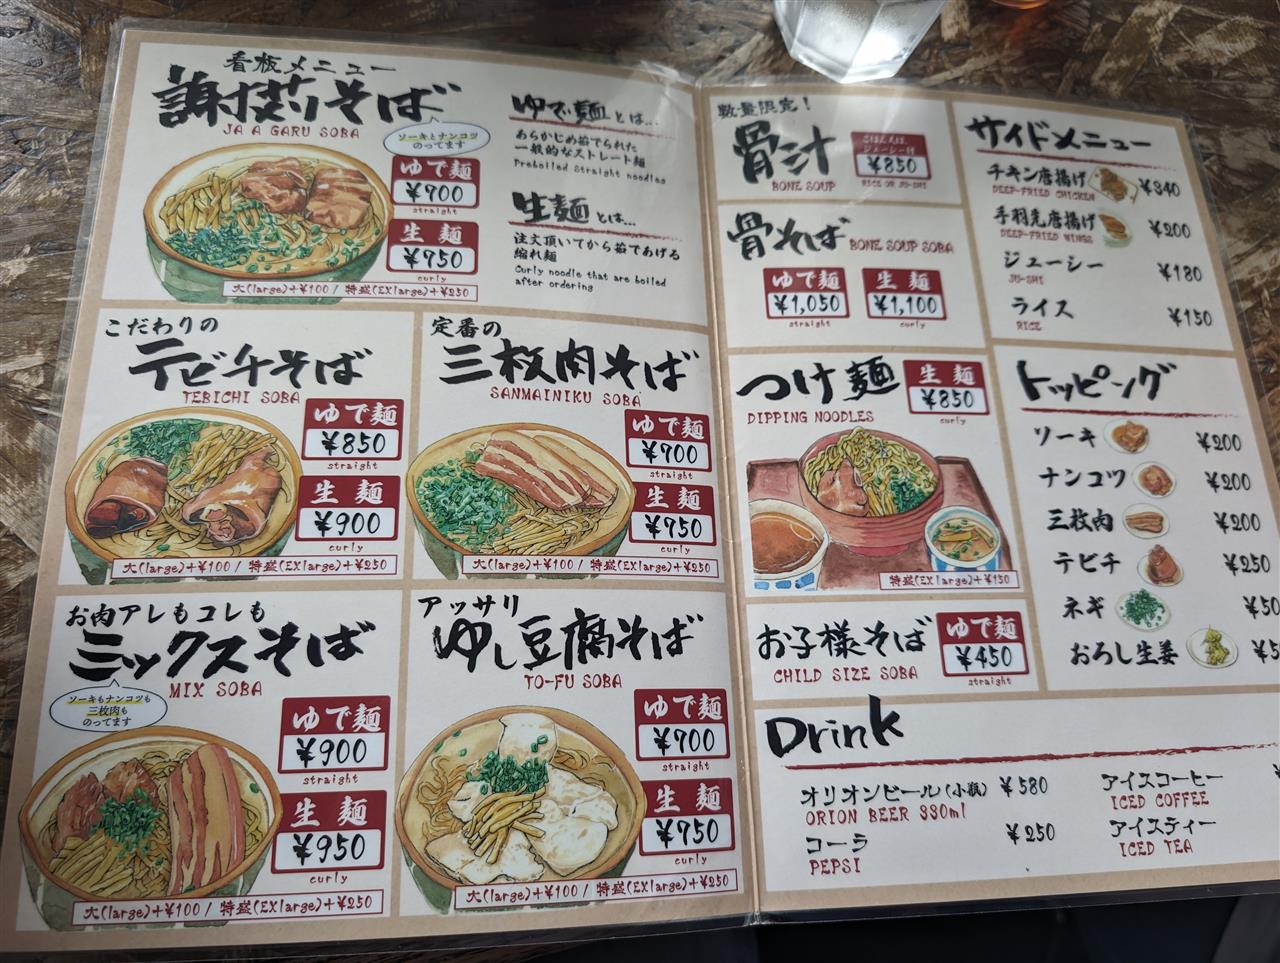 看板メニュー
謝苅そば
JA A GARU SOBA
ソーキとナンコツ
のってます
ゆで麺
¥700
straight
生麺
¥750
curly
大(large)+¥100 / 特盛(EXlarge)+¥250
ゆで麺とは...
あらかじめ茹でられた
一般的なストレート麺
Preboiled Straight noodles
生麺とは...
注文頂いてから茹であげる
縮れ麺
Curly noodle that are boiled
after ordering
こだわりの
テビチそば
TEBICHI SOBA
ゆで麺
¥850
straight
生麺
¥900
curly
大(large)+¥100 / 特盛(EXlarge)+¥250
定番の
三枚肉そば
SANMAINIKU SOBA
ゆで麺
¥700
straight
生麺
¥750
curly
大(large)+¥100 / 特盛(EXlarge)+¥250
お肉アレもコレも
ミックスそば
MIX SOBA
ソーキもナンコツも
三枚肉も
のってます
ゆで麺
¥900
straight
生麺
¥950
curly
大(large)+¥100 / 特盛(EXlarge)+¥250
アッサリ
ゆし豆腐そば
TO-FU SOBA
ゆで麺
¥700
straight
生麺
¥750
curly
大(large)+¥100 / 特盛(EXlarge)+¥250
数量限定!
骨汁
BONE SOUP
ごはん又は、
ジューシー付
¥850
RICE OR JU-SHI
骨そば
BONE SOUP SOBA
ゆで麺
¥1,050
straight
生麺
¥1,100
curly
つけ麺
DIPPING NOODLES
生麺
¥850
curly
特盛(EXlarge)+¥150
お子様そば
CHILD SIZE SOBA
ゆで麺
¥450
straight
サイドメニュー
チキン唐揚げ ¥340
DEEP-FRIED CHICKEN
手羽先唐揚げ ¥200
DEEP-FRIED WINGS
ジューシー ¥180
JU-SHI
ライス ¥150
RICE
トッピング
ソーキ ¥200
ナンコツ ¥200
三枚肉 ¥200
テビチ ¥250
ネギ ¥50
おろし生姜
Drink
オリオンビール(小瓶) ¥580
ORION BEER 330ml
コーラ ¥250
PEPSI
アイスコーヒー
ICED COFFEE
アイスティー
ICED TEA